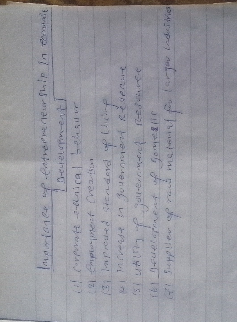 Importance of entrepreneurship in economic
Development
(1) Corporate ethical behaviour
(2) Employment Creation
(3) Improved standard of living
(4) Increase in government Revenue
(5) Utility of government resources
(6) Development of
(7) Supplier of raw material for large industries